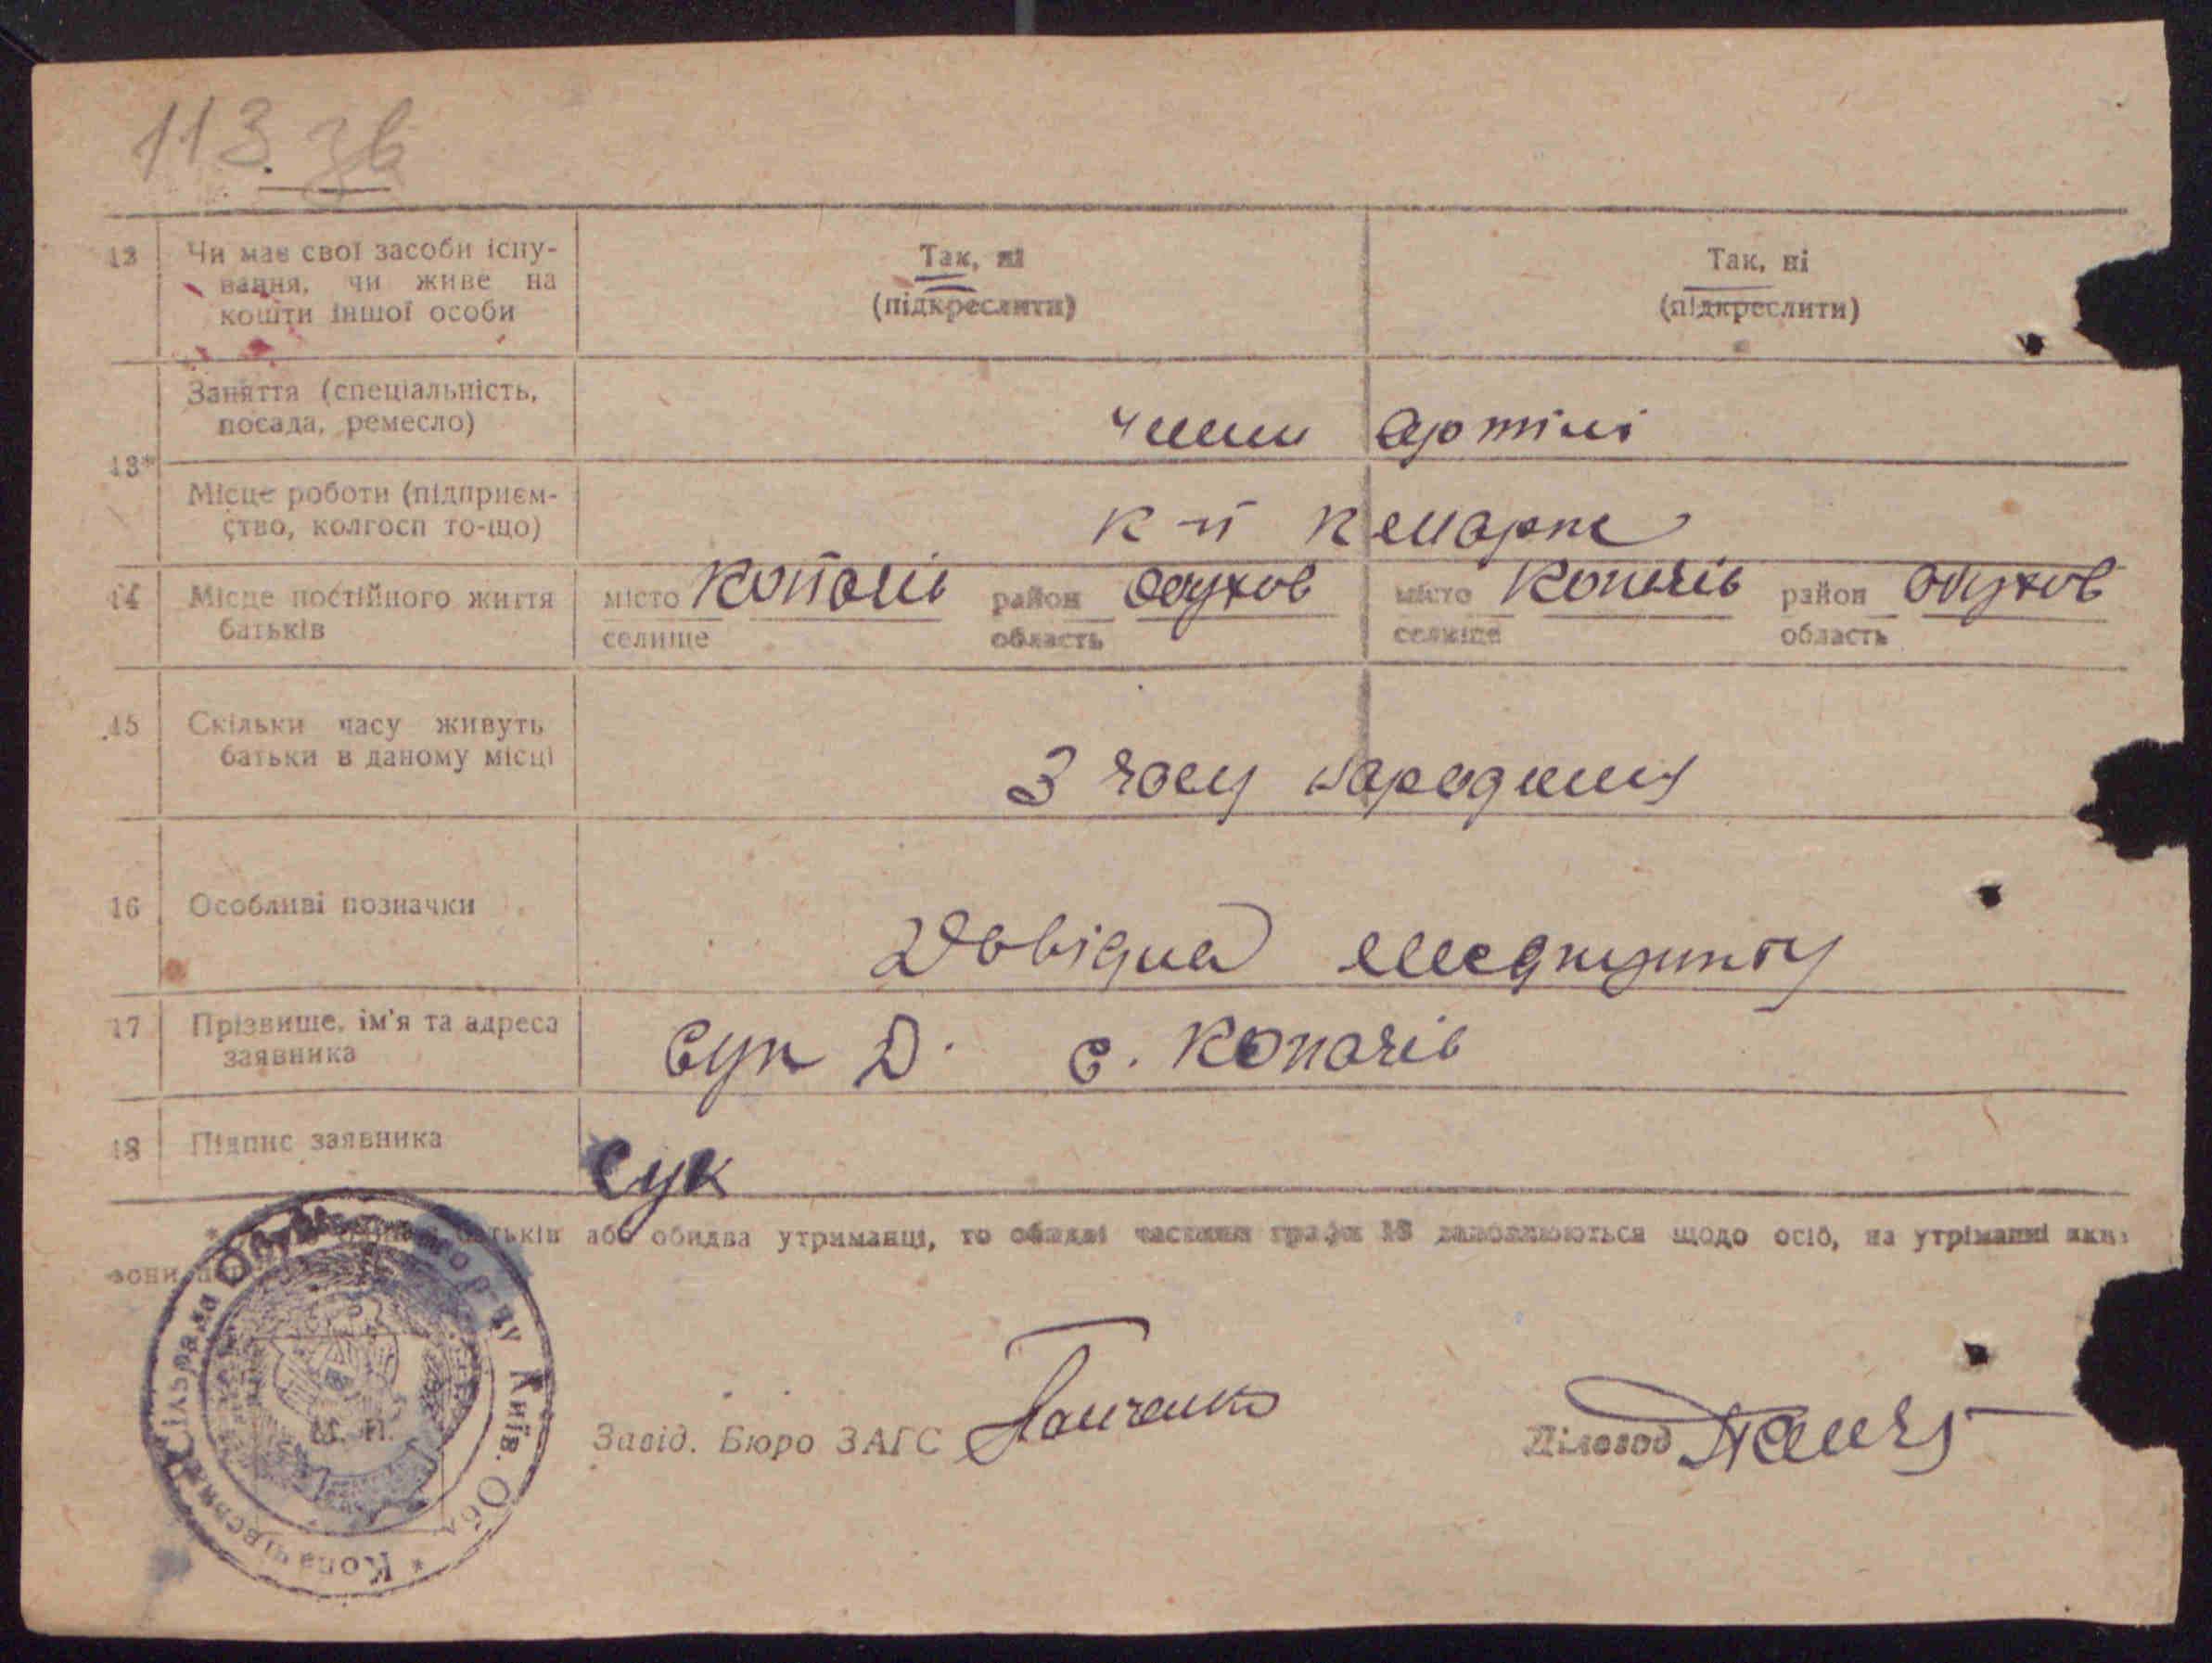 113 зв
12 Чи має свої засоби існу-
вання, чи живе на
кошти іншої особи
Так, ні
(підкреслити)
Так, ні
(підкреслити)
13*
Заняття (спеціальність,
посада, ремесло)
члени артілі
Місце роботи (підприєм-
ство, колгосп то-що)
к-п
14 Місце постійного життя
батьків
місто Копачів район Обухов
селище область
місто Копачів район Обухов
селище область
15 Скільки часу живуть
батьки в даному місці
З часу народження
16 Особливі позначки
Довідка медпункту
17 Прізвише, ім'я та адреса
заявника
Сук Д. с. Копачів
18 Підпис заявника
Сук
батьків або обидва утриманці, то обидві частини графи 13 заповнюються щодо осіб, на утріманні яких
вони
Копачівська Сільрада Київ. Обл.
М. П.
Завід. Бюро ЗАГС Панченко
Діловод